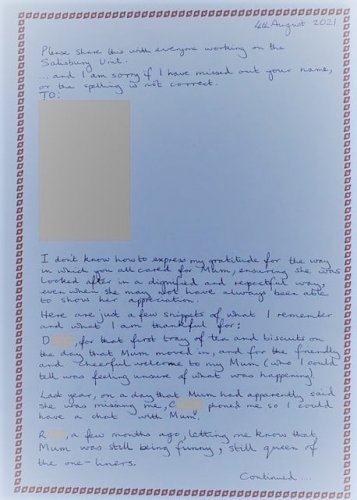 4th August 2021
Please share this with everyone working on the
Salisbury Unit.
... and I am sorry if I have missed out your name,
or the spelling is not correct.
TO:
I don't know how to express my gratitude for the way
in which you all cared for Mum, ensuring she was
looked after in a dignified and repectful way,
even when she may not have always been able
to show her appreciation.
Here are just a few snippets of what I remember
and what I am thankful for:
D , for that first tray of tea and biscuits on
the day that Mum moved in, and for the friendly
and cheerful welcome to my Mum (who I could
tell was feeling unsure of what was happening)
Last year, on a day that Mum had apparently said
she was missing me, C phoned me so I could
have a chat with Mum,
R , a few months ago, letting me know that
Mum was still being funny, still queen of
the one-liners.
Continued ...